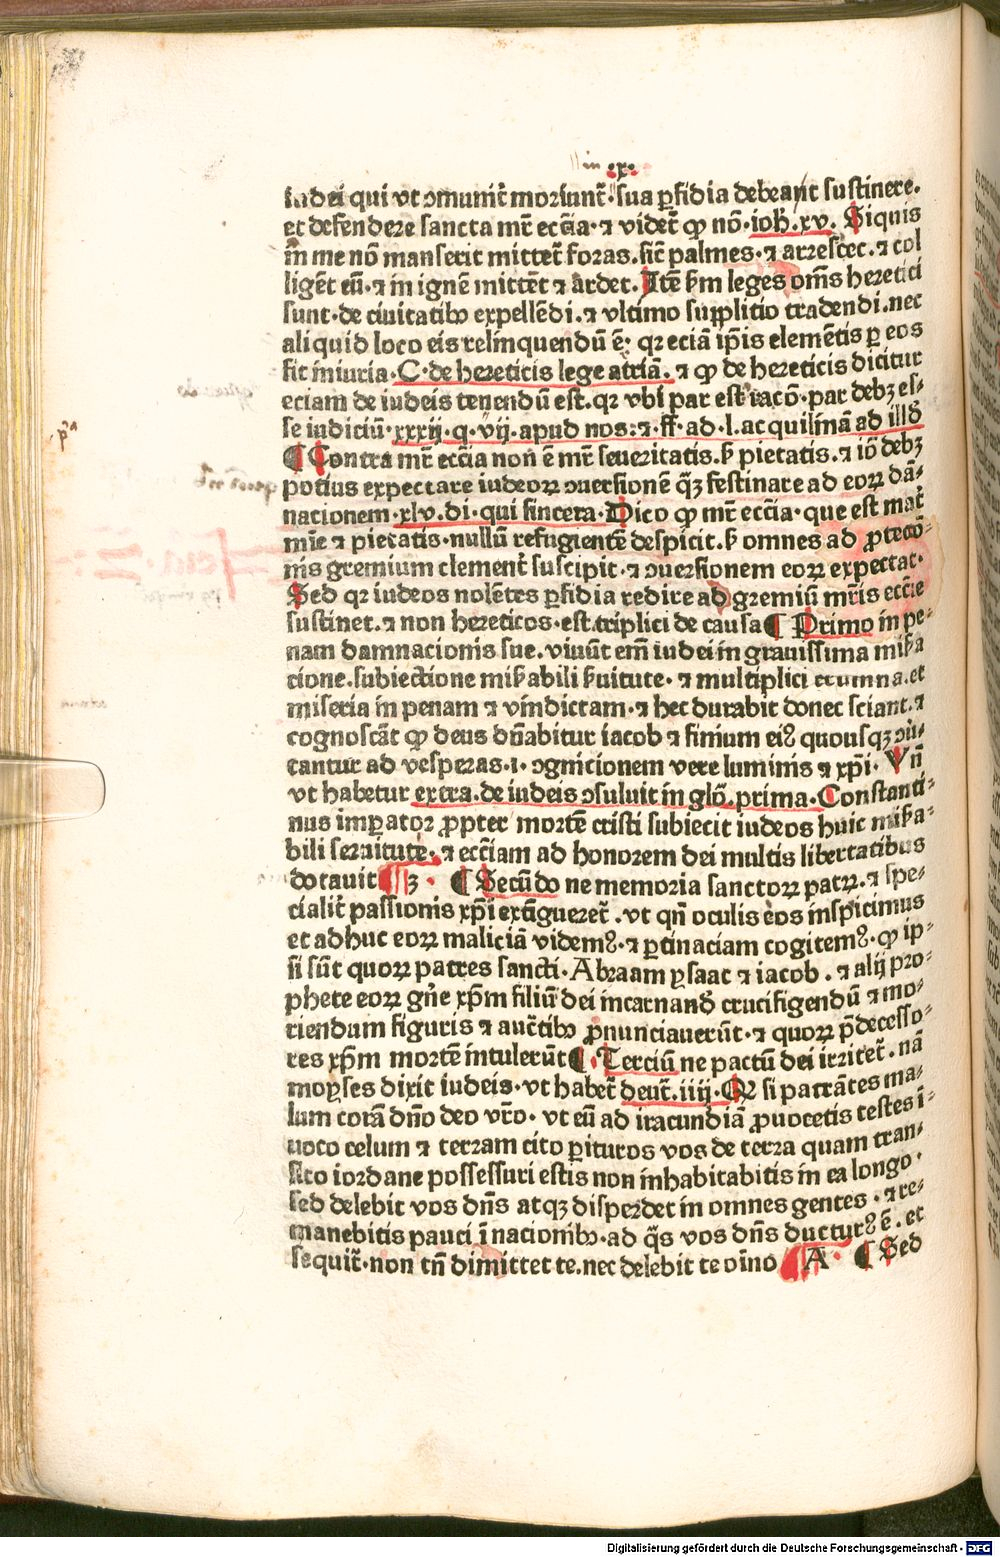 ·x·
iudei qui vt ↄmunit̃ moriunt̃·sua ꝑfidia debeant sustinere.
et defendere sancta mr̃ ecc̃ia·⁊ videt̃ ꝙ nõ·ioh̃.xv. Siquis
ĩ me nõ manserit mittet̃ foras.sic̃ palmes·⁊ arescet.⁊ col
ligẽt eũ·⁊ in ignẽ mittẽt ⁊ ardet. Itẽ ẜm leges om̃s heretici
sunt·de ciuitatibꝫ expellẽdi.⁊ vltimo supplitio tradendi.nec
aliquid loco eis relinquendũ ẽ· qꝛ eciã ip̃is elemẽtis ꝑ eos
fit iniuria·C·de hereticis lege atriã.⁊ ꝙ de hereticis dicitur
eciam de iudeis tenendũ est.qꝛ vbi par est racõ·par debꝫ es⸗
se iudiciũ·xxxij·q·vij.apud nos:⁊·ff·ad·l.acquiliniã ad illd̃
¶ Contra mr̃ ecc̃ia non ẽ mr̃ seueritatis.ẜ pietatis.⁊ iõ debꝫ
potius expectare iudeoꝝ ↄuersionẽ q̃ꝫ festinare ad eoꝝ dã⸗
nacionem·xlv.di.qui sincera·Dico ꝙ mr̃ ecc̃ia·que est mat̃
mĩe ⁊ pietatis·nullũ refugientẽ despicit.ẜ omnes ad ꝓtectõ⸗
nis gremium clement̃ suscipit·⁊ ↄuersionem eoꝝ expectat·
Sed qꝛ iudeos nolẽtes ꝑfidia redire ad gremiũ mr̃is ecc̃ie
sustinet.⁊ non hereticos·est.triplici de causa¶ Primo in pe⸗
nam damnacionis sue.viuũt em̃ iudei in grauissima misẜa
cione.subiectione misẜabili ẜuitute·⁊ multiplici erumna.et
miseria in penam ⁊ vindictam·⁊ hec durabit donec sciant.⁊
cognoscãt ꝙ deus dñabitur iacob ⁊ finium eiꝰ quousqꝫ ↄũ⸗
tantur ad vesperas·i·ↄgnicionem vere luminis ⁊ xp̃i· Vñ
vt habetur extra.de iudeis ↄsuluit in glõ.prima.Constanti⸗
nus imꝑator ꝓpter mortẽ cristi subiecit iudeos huic misẜa⸗
bili seruitute·⁊ ecc̃iam ad honorem dei multis libertatibus
dotauit ꝫ· ¶ Secũdo ne memoria sanctoꝝ patꝝ.⁊ spe⸗
cialit̃ passionis xp̃i extĩgueret̃.vt qñ oculis eos inspicimus
et adhuc eoꝝ maliciã videmꝰ·⁊ ꝑtinaciam cogitemꝰ.ꝙ ip⸗
si sũt quoꝝ patres sancti·Abraam ysaac ⁊ iacob.⁊ alij pro⸗
phete eoꝝ gñe xp̃m filiũ dei incarnand̃ crucifigendũ ⁊ mo⸗
riendum figuris ⁊ auctĩbꝫ ꝓnunciauerũt·⁊ quoꝝ p̃decesso⸗
res xp̃m mortẽ intulerũt¶·Terciũ ne pactũ dei irritet̃.nã
moyses dixit iudeis·vt habet̃ deut̃.iiij.Qꝛ si patrãtes ma⸗
lum corã dño deo vr̃o·vt eũ ad iracundiã ꝓuocetis testes ĩ⸗
uoco celum ⁊ terram cito ꝑituros vos de terra quam tran⸗
sito iordane possessuri estis non inhabitabitis in ea longo·
sed delebit vos dñs atqꝫ disperdet in omnes gentes·⁊ re⸗
manebitis pauci ĩ nacionibꝫ·ad q̃s vos dñs ducturꝰ ẽ.et
sequit̃·non tñ dimittet te.nec delebit te oĩno A· ¶ Sed
Digitalisierung gefördert durch die Deutsche Forschungsgemeinschaft - DFG